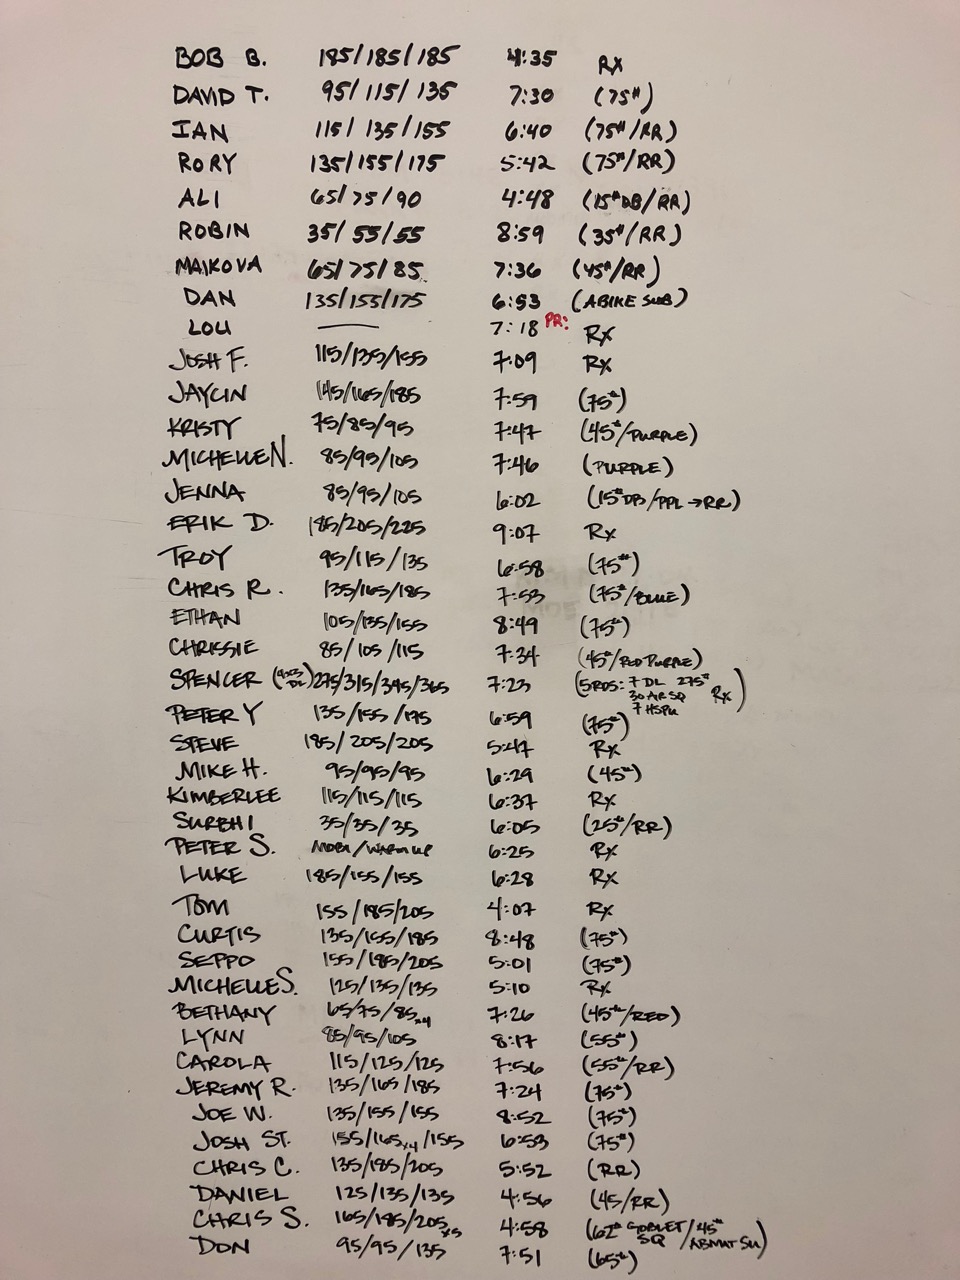 BOB B. 185/185/185 4:35 Rx
DAVID T. 95/115/135 7:30 (75#)
IAN 115/135/155 6:40 (75#/RR)
RORY 135/155/175 5:42 (75#/RR)
ALI 65/75/90 4:48 (15#DB/RR)
ROBIN 35/55/55 8:59 (35#/RR)
MAIKOVA 65/75/85 7:36 (45#/RR)
DAN 135/155/175 6:53 (ABIKE SUB)
LOU — 7:18 PR: Rx
JOSH F. 115/135/155 7:09 Rx
JAYLIN 145/165/185 7:59 (75#)
KRISTY 75/85/95 7:47 (45#/PURPLE)
MICHELLE N. 85/95/105 7:46 (PURPLE)
JENNA 85/95/105 6:02 (15#DB/PPL→RR)
ERIK D. 185/205/225 9:07 Rx
TROY 95/115/135 6:58 (75#)
CHRIS R. 135/165/185 7:53 (75#/BLUE)
ETHAN 105/135/155 8:49 (75#)
CHRISSIE 85/105/115 7:34 (45#/RED PURPLE)
SPENCER (DL) 275/315/345/365 7:23 (5RDS: 7 DL 275#
30 AIR SQ Rx)
7 HSPU
PETER Y 135/155/175 6:59 (75#)
STEVE 185/205/205 5:47 Rx
MIKE H. 95/95/95 6:29 (45#)
KIMBERLEE 115/115/115 6:37 Rx
SURBHI 35/35/35 6:05 (25#/RR)
PETER S. MOBI/WARM UP 6:25 Rx
LUKE 185/155/155 6:28 Rx
TOM 155/185/205 4:07 Rx
CURTIS 135/155/185 8:48 (75#)
SEPPO 155/185/205 5:01 (75#)
MICHELLE S. 125/135/135 5:10 Rx
BETHANY 65/75/85x4 7:26 (45#/RED)
LYNN 85/95/105 8:17 (55#)
CAROLA 115/125/125 7:56 (55#/RR)
JEREMY R. 135/165/185 7:24 (75#)
JOE W. 135/155/155 8:52 (75#)
JOSH ST. 155/165x4/155 6:53 (75#)
CHRIS C. 135/185/205 5:52 (RR)
DANIEL 125/135/135 4:56 (45/RR)
CHRIS S. 165/185/205x5 4:58 (62# GOBLET SQ/45# /ABMAT SU)
DON 95/95/135 7:51 (65#)